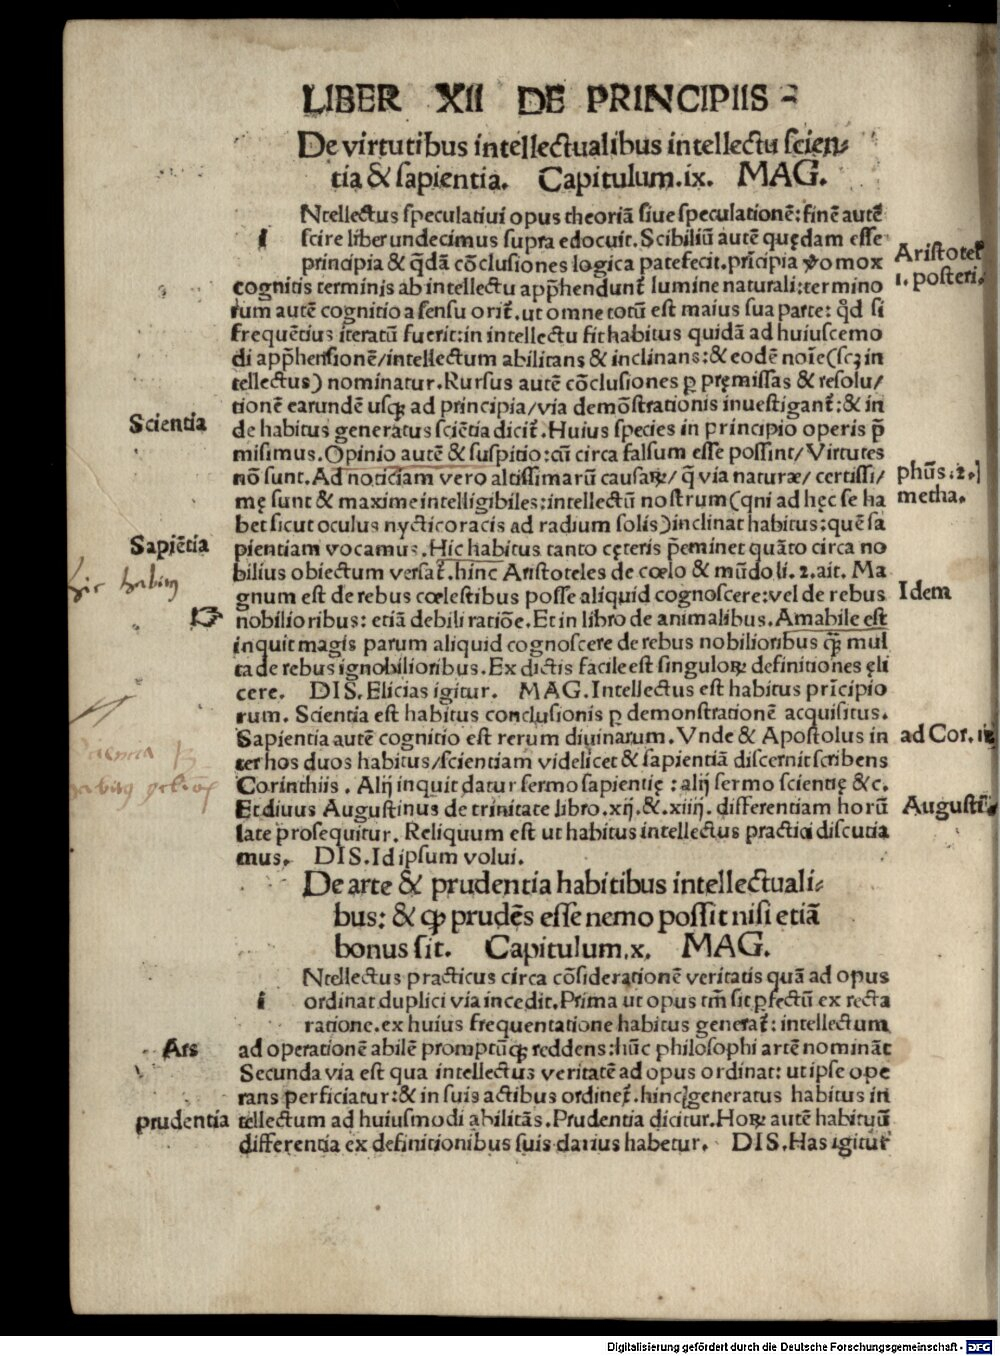 LIBER XII DE PRINCIPIIS
De virtutibus intellectualibus intellectu scien-
tia & sapientia. Capitulum.ix. MAG.
Ntellectus speculatiui opus theoriā siue speculationē: finē autē
i scire liber undecimus supra edocuit. Scibiliū autē quędam esse
principia & q̄dā cōclusiones logica patefecit. prīcipia ꝟo mox
Aristotel̕
1. posteri.
cognitis terminis ab intellectu app̄hendunt̕ lumine naturali: termino
rum autē cognitio a sensu orit̕. ut omne totū est maius sua parte: qd̕ si
frequētius iteratū fuerit: in intellectu fit habitus quidā ad huiuscemo
di app̄hensionē/intellectum abilitans & inclinans: & eodē noīe (scꝫ in
tellectus) nominatur. Rursus autē cōclusiones ꝑ pręmissas & resolu/
tionē earundē usqꝫ ad principia/via demōstrationis inuestigant̕: & in
Scientia
de habitus generatus sciētia dicit̕. Huius species in principio operis p̄
misimus. Opinio autē & suspitio: cū circa falsum esse possint/Virtutes
nō sunt. Ad noticiam vero altissimarū causaꝝ/ q̄ via naturæ/ certissi/
phūs. 2.
metha.
mę sunt & maxime intelligibiles: intellectū nostrum (qni ad hęc se ha
bet sicut oculus nycticoracis ad radium solis) inclinat habitus: quē sa
Sapiētia
pientiam vocamus. Hic habitus tanto cęteris p̄eminet quāto circa no
hic habitus
bilius obiectum versat̕. hinc Aristoteles de cœlo & mūdo li. 2. ait. Ma
gnum est de rebus cœlestibus posse aliquid cognoscere: vel de rebus
Idem
nobilioribus: etiā debili ratiōe. Et in libro de animalibus. Amabile est
inquit magis parum aliquid cognoscere de rebus nobilioribus qꝫ̄ mul
ta de rebus ignobilioribus. Ex dictis facile est singuloꝝ definitiones ęli
cere. DIS. Elicias igitur. MAG. Intellectus est habitus prīcipio
rum. Scientia est habitus conclusionis ꝑ demonstrationē acquisitus.
Sapientia autē cognitio est rerum diuinarum. Vnde & Apostolus in
ad Cor. 12
ter hos duos habitus/scientiam videlicet & sapientiā discernit scribens
Corinthiis. Alij inquit datur sermo sapientię: alij sermo scientię &c.
Et diuus Augustinus de trinitate libro. xij. &. xiiij. differentiam horū
Augusti
late prosequitur. Reliquum est ut habitus intellectus practici discutia
mus. DIS. Id ipsum volui.
De arte & prudentia habitibus intellectuali-
bus: & ꝙ prudēs esse nemo possit nisi etiā
bonus sit. Capitulum. x. MAG.
Ntellectus practicus circa cōsiderationē veritatis quā ad opus
i ordinat duplici via incedit. Prima ut opus tm̄ sit ꝑfectū ex recta
ratione. ex huius frequentatione habitus generat̕: intellectum
Ars
ad operationē abilē promptūqꝫ reddens: hūc philosophi artē nomināt
Secunda via est qua intellectus veritatē ad opus ordinat: ut ipse ope
rans perficiatur: & in suis actibus ordinet̕. hinc generatus habitus in
prudentia
tellectum ad huiusmodi abilitās. Prudentia dicitur. Hoꝝ autē habituū
differentia ex definitionibus suis darius habetur. DIS. Has igitur
Digitalisierung gefördert durch die Deutsche Forschungsgemeinschaft - DFG